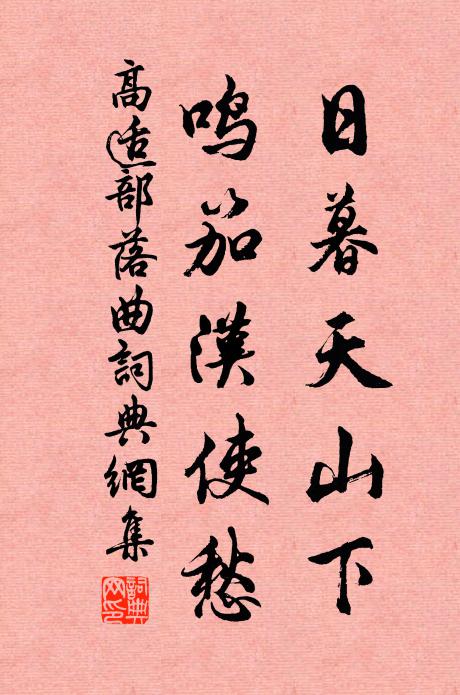 日暮天山下
鸣笳漢使愁
高适部落曲詞典網集
詞典
网印